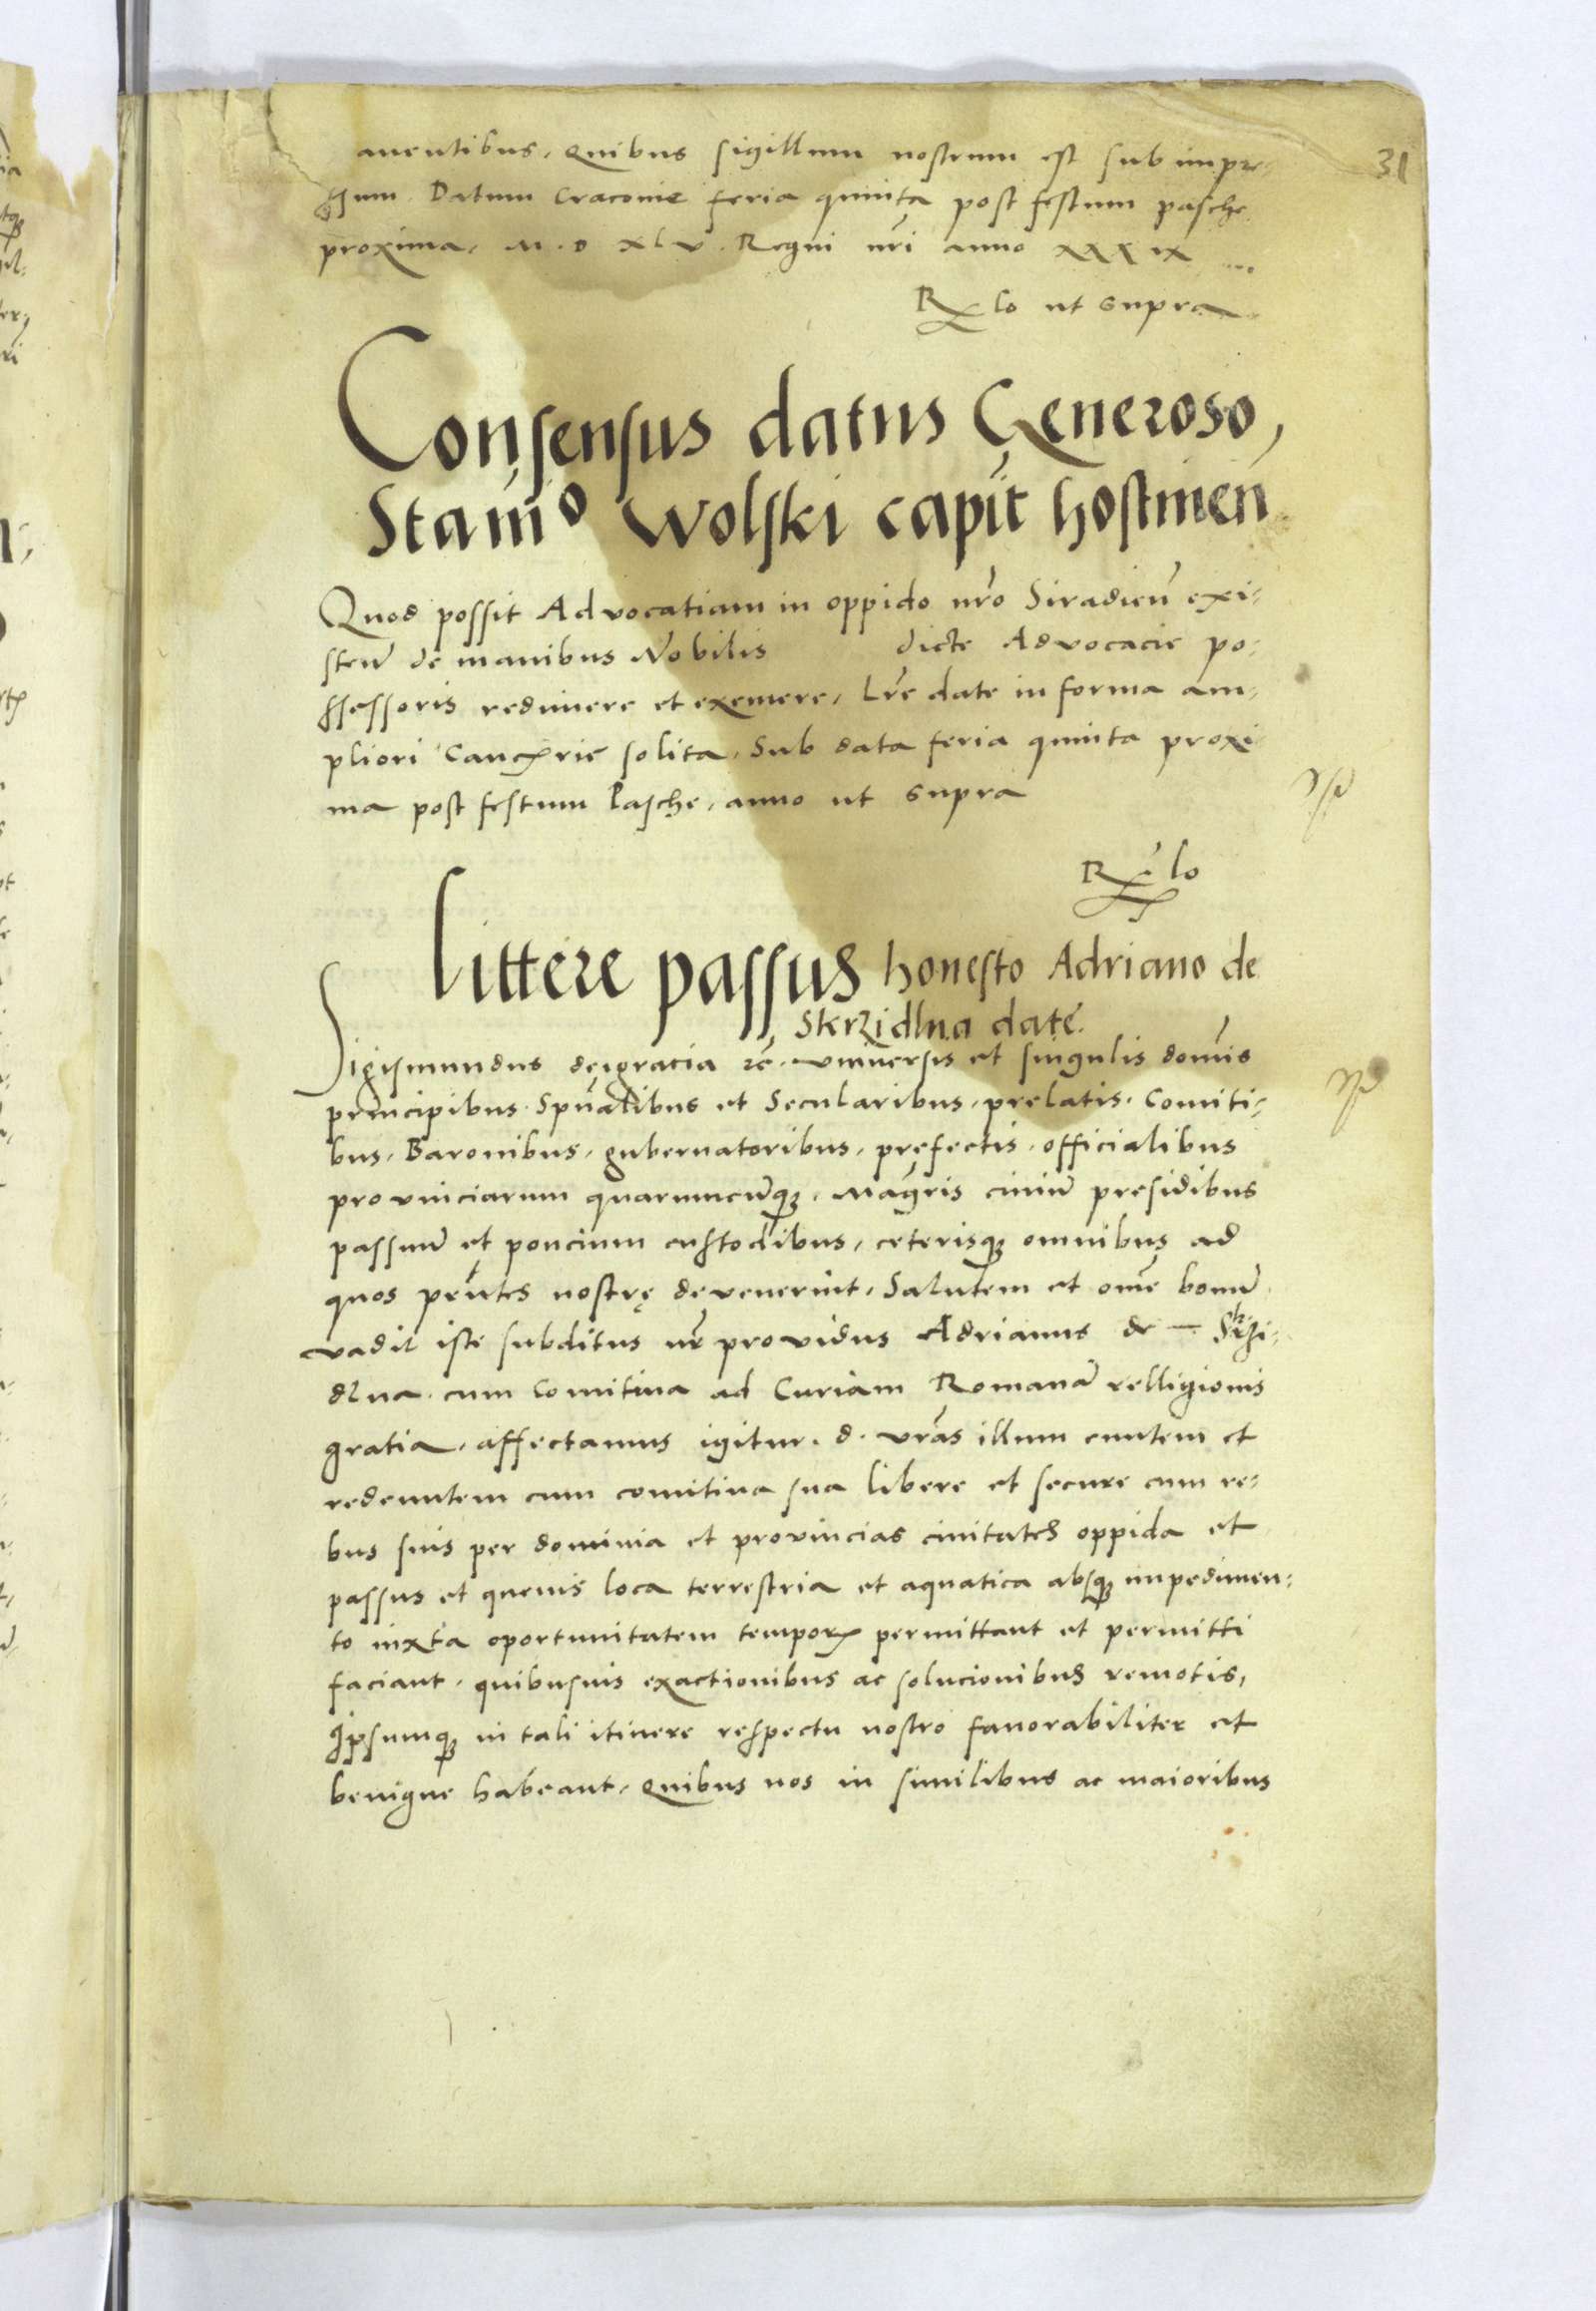 31
auentibus, Quibus sigillum nostrum est sub impre-
ssum. Datum Cracouie feria quinta post festum pasche
proxima, M.D XLV. Regni nr̃i anno XXXIX ...
Rx lo ut supra
Consensus datus Generoso,
Stanio Wolski capit̃ hostinen̄
Quod possit Advocatiam in oppido nr̃o Siradien̄ exi-
sten̄ de manibus Nobilis dicte Advocacie po-
ssessoris redimere et exemere, Lr̃e date in forma am-
pliori Cancrie solita, Sub data feria quinta proxi-
ma post festum Pasche, anno ut supra
Rx lo
Littere passus honesto Adriano de
Skrzidlna date.
Sigismundus deigracia rc̃. vniuersis et singulis domīs
principibus. Spūalibus et Secularibus, prelatis. Comiti-
bus, Baronibus, gubernatoribus, pręfectis, officialibus
prouinciarum quarumcunq3, Magr̃is ciuiū presidibus
passuū et poncium custodibus, ceterisq3 omnibus ad
quos pr̃ntes nostrę devenerint, Salutem et om̄e bonū
vadit iste subditus nr̃ providus Adrianus de – Skrzi-
dlna. cum Comitiua ad Curiam Romanā relligionis
gratia, affectamus igitur. d. vrãs illum euntem et
redeuntem cum comitiua sua libere et secure cum re-
bus suis per dominia et prouincias ciuitates oppida et
passus et queuis loca terrestria et aquatica absq3 impedimen-
to iuxta oportunitatem tempor permittant et permitti
faciant, quibusuis exactionibus ac solucionibus remotis,
Ipsumq3 in tali itinere respectu nostro fauorabiliter et
benigne habeant, Quibus nos in similibus ac maioribus